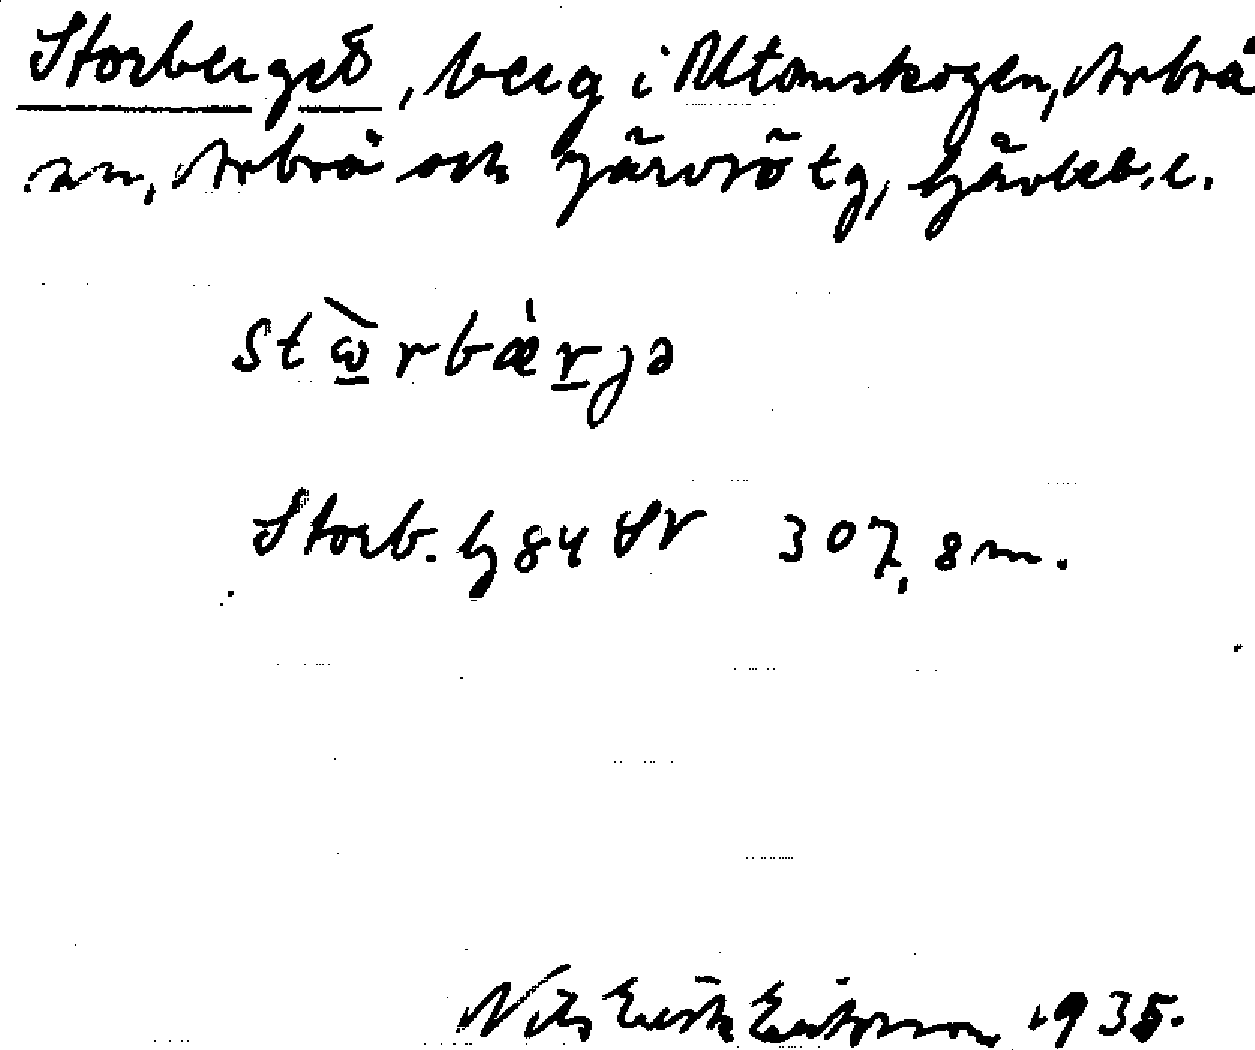 Storberget, berg i Utomskogen, Arbrå
sn, Arbrå och Järvsö tg, Gävleb. l.
stὼ̲rbæ̀r̲jə
Storb. 84 SV 307,8 m.
Nils Erik Eriksson 1935.